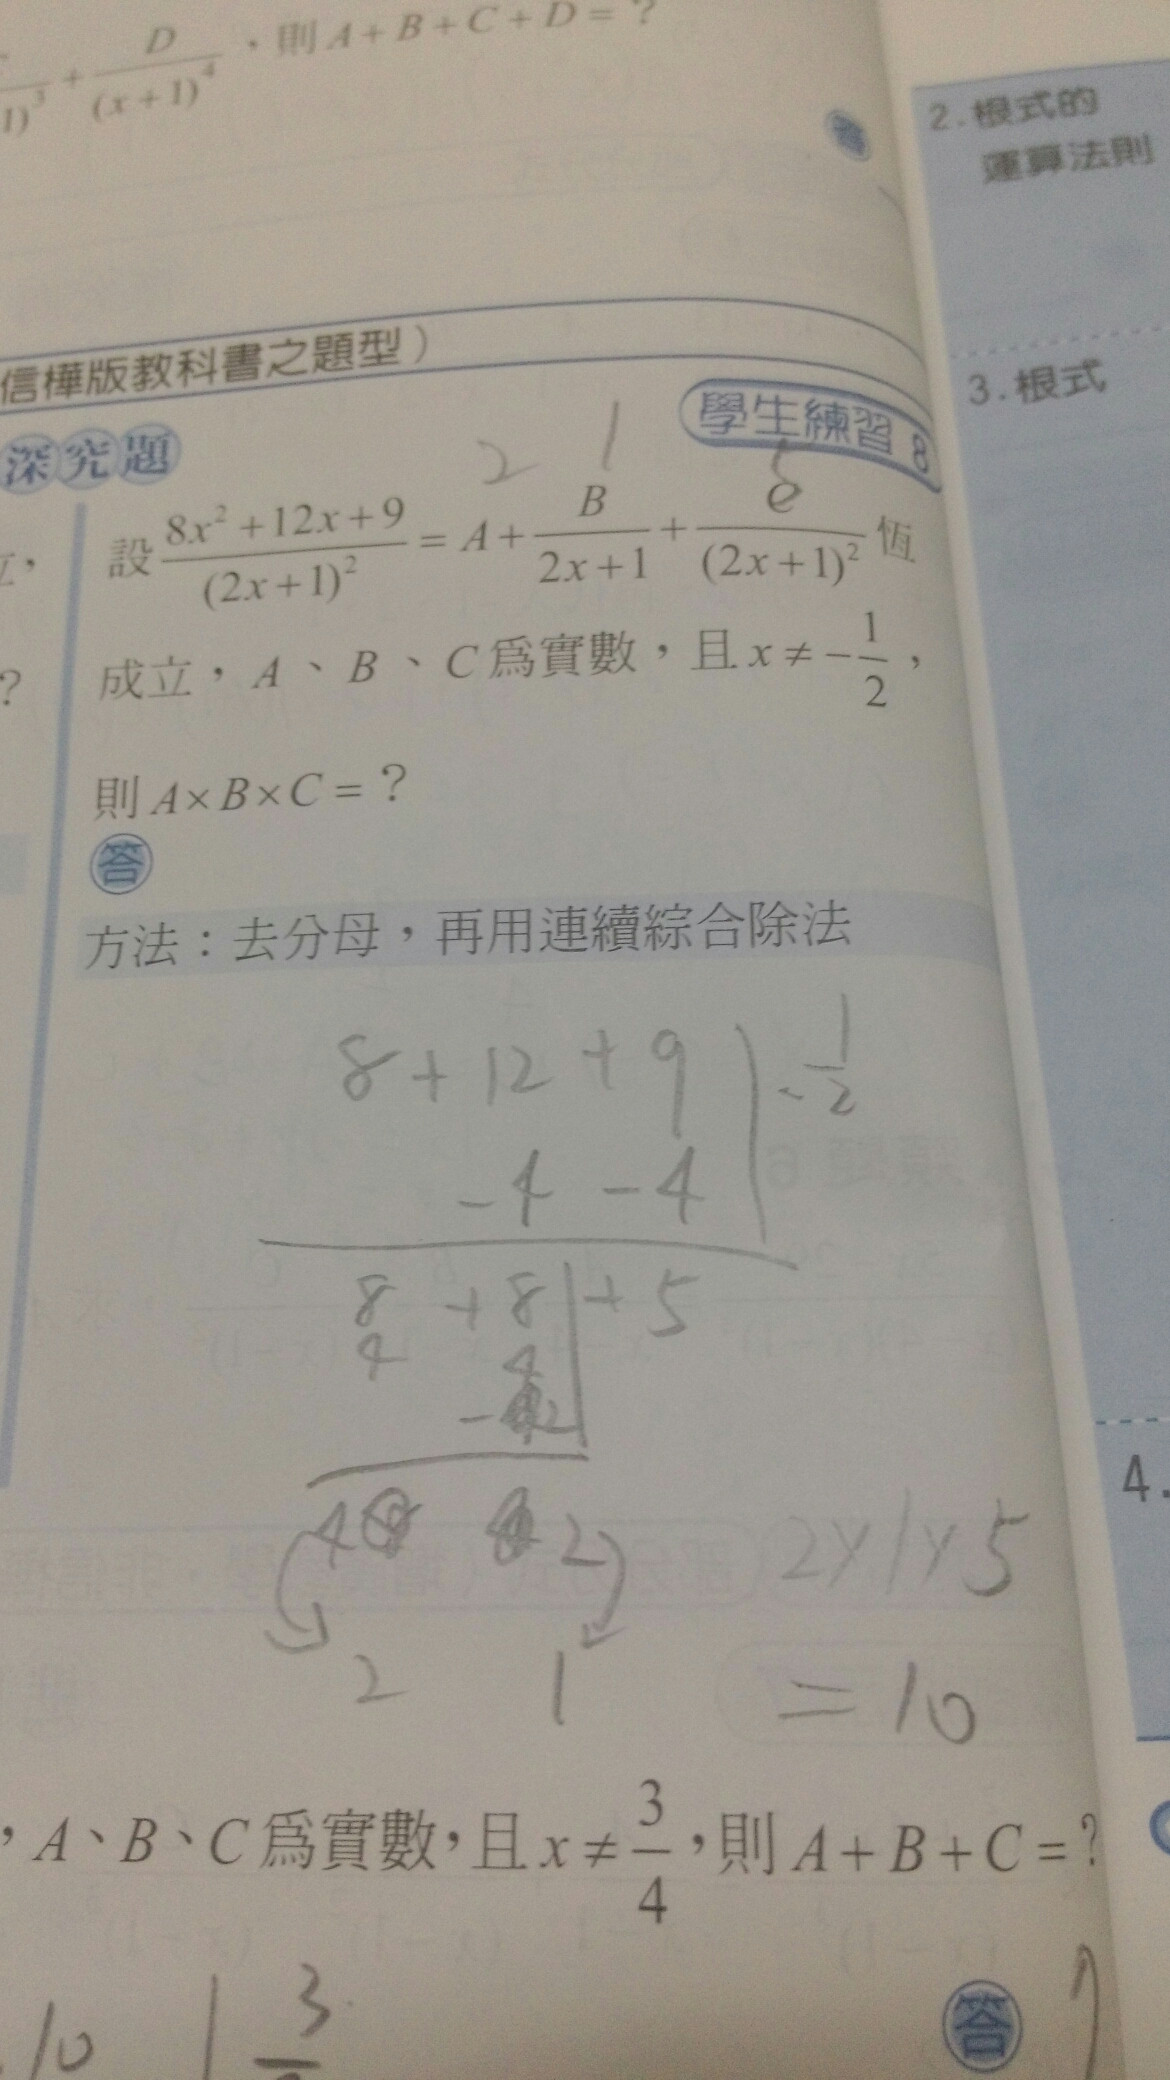 1)³ + D/(x+1)⁴，則 A+B+C+D=？
答
2.根式的
運算法則
信樺版教科書之題型）
3.根式
深究題
學生練習 8
2 1 5
設 (8x²+12x+9)/(2x+1)² = A + B/(2x+1) + C/(2x+1)² 恆
成立，A、B、C為實數，且 x≠-1/2，
?
則 A×B×C=？
答
方法：去分母，再用連續綜合除法
8+12+9 -1/2
-4 -4
8+8 +5
4 4
-2
4 2
4.
2 1
2×1×5
=10
，A、B、C為實數，且 x≠3/4，則 A+B+C=?
10 3
答